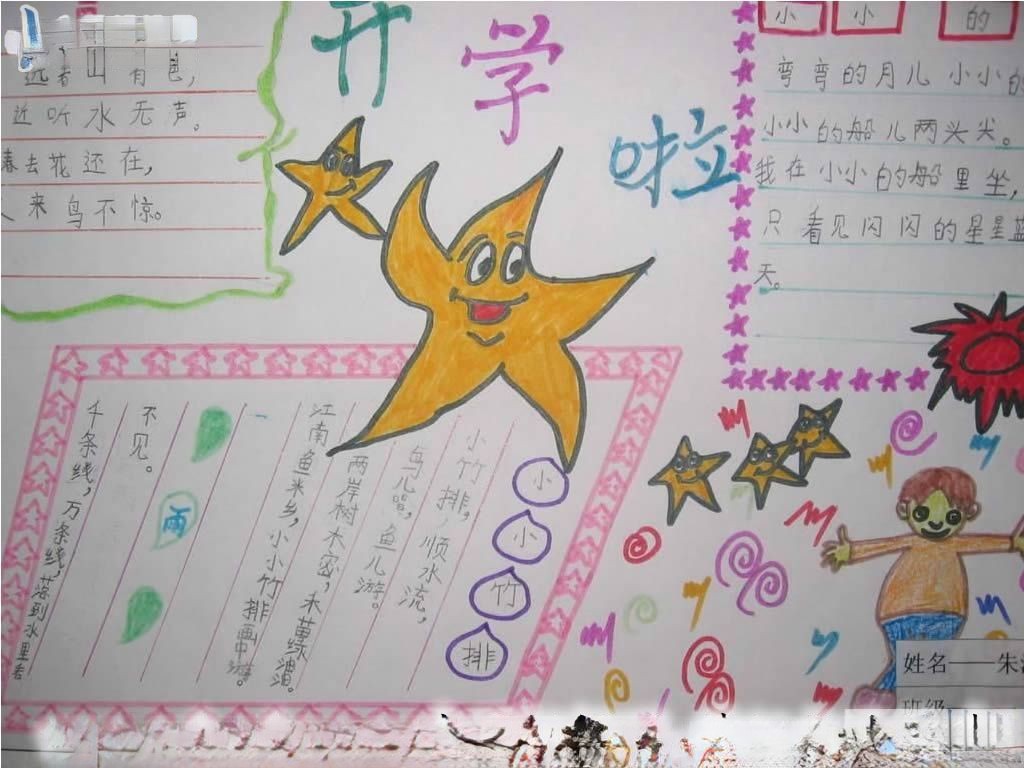 开学啦
远看山有色,
近听水无声。
春去花还在,
来鸟不惊。
小小的
弯弯的月儿小小的
小小的船儿两头尖。
我在小小的船里坐,
只看见闪闪的星星蓝
天。
小小竹排
小竹排,顺水流,
鸟儿唱,鱼儿游。
两岸树木密,禾苗绿油。
江南鱼米乡,小小竹排画中游。
雨
千条线,万条线,落到水里看
不见。
姓名——朱
班级